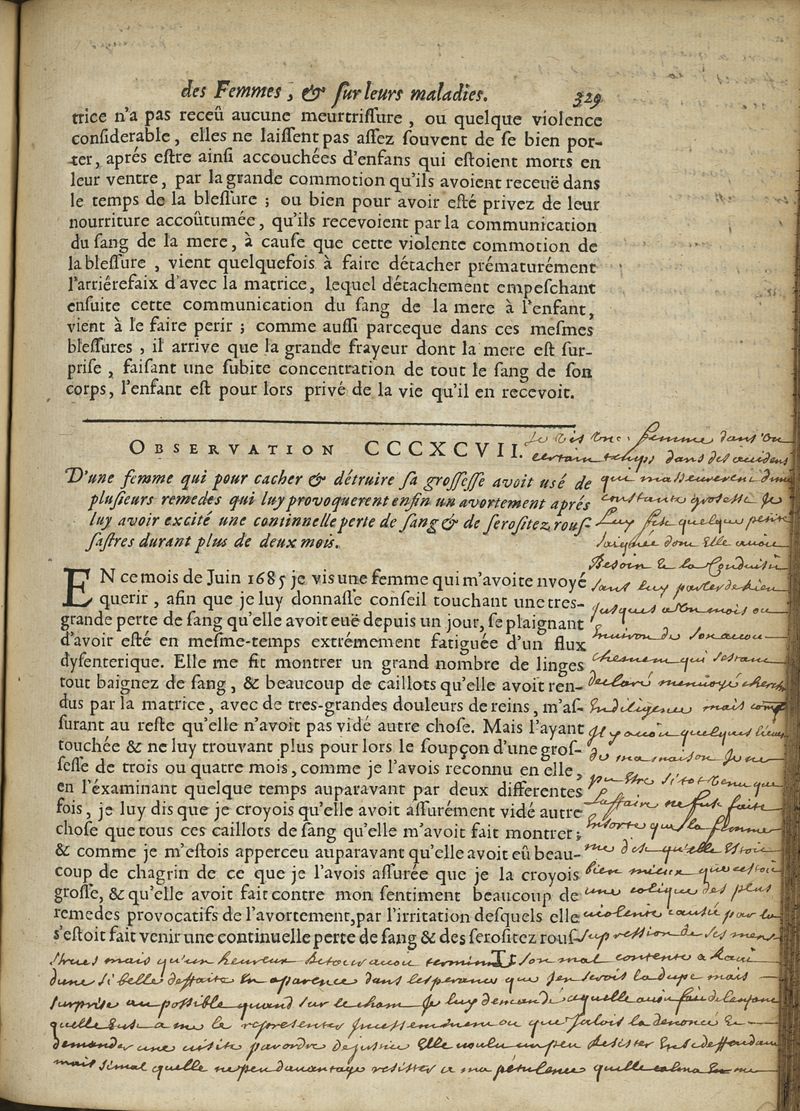 des Femmes, & ſur leurs maladies. 329
trice n'a pas receû aucune meurtriſſure, ou quelque violence
conſiderable, elles ne laiſſent pas aſſez ſouvent de ſe bien por-
ter, aprés eſtre ainſi accouchées d'enfans qui eſtoient morts en
leur ventre, par la grande commotion qu'ils avoient receuë dans
le temps de la bleſſure ; ou bien pour avoir eſté privez de leur
nourriture accoûtumée, qu'ils recevoient par la communication
du ſang de la mere, à cauſe que cette violente commotion de
la bleſſure, vient quelquefois à faire détacher prématurément
l'arriérefaix d'avec la matrice, lequel détachement empeſchant
enſuite cette communication du ſang de la mere à l'enfant,
vient à le faire perir ; comme auſſi parceque dans ces meſmes
bleſſures, il arrive que la grande frayeur dont la mere eſt ſur-
priſe, faiſant une ſubite concentration de tout le ſang de ſon
corps, l'enfant eſt pour lors privé de la vie qu'il en recevoit.
OBSERVATION CCCXCVII.
D'une femme qui pour cacher & détruire ſa groſſeſſe avoit usé de
pluſieurs remedes qui luy provoquerent enfin un avortement aprés
luy avoir excité une continnelle perte de ſang & de ſeroſitez rouſ-
ſaſtres durant plus de deux mois.
EN ce mois de Juin 1685 je vis une femme qui m'avoit envoyé
querir, afin que je luy donnaſſe conſeil touchant une tres-
grande perte de ſang qu'elle avoit euë depuis un jour, ſe plaignant
d'avoir eſté en meſme-temps extrémement fatiguée d'un flux
dyſenterique. Elle me fit montrer un grand nombre de linges
tout baignez de ſang, & beaucoup de caillots qu'elle avoit ren-
dus par la matrice, avec de tres-grandes douleurs de reins, m'aſ-
ſurant au reſte qu'elle n'avoit pas vidé autre choſe. Mais l'ayant
touchée & ne luy trouvant plus pour lors le ſoupçon d'une groſ-
ſeſſe de trois ou quatre mois, comme je l'avois reconnu en elle,
en l'éxaminant quelque temps auparavant par deux differentes
fois, je luy dis que je croyois qu'elle avoit aſſurément vidé autre
choſe que tous ces caillots de ſang qu'elle m'avoit fait montrer ;
& comme je m'eſtois apperceu auparavant qu'elle avoit eû beau-
coup de chagrin de ce que je l'avois aſſurée que je la croyois
groſſe, & qu'elle avoit fait contre mon ſentiment beaucoup de
remedes provocatifs de l'avortement, par l'irritation deſquels elle
s'eſtoit fait venir une continuelle perte de ſang & des ſeroſitez rouſ-
Tt
femme dans un
certain temps dans des accidens
constante grosesse je
luy fis quelque petite
saignée dont elle avoit
besoin & la conduisis
sans luy parler de rien
jusques a un mois ou
environ de son acou-
chement qui
declaré
en diligence mais comme
il y avoit quelques lieues
de ma maison je ne
pu estre sitot venu que
laffaire ne fut faite
ensorte que la femme
me dit qu'elle estoit
bien mieux que cestoit
une colique des plus
violente causée par la
supression de ses mens
strues mais qu'un heureux retour avoit terminé son mal contente a
dune si belle deffaite en aparence dans lesperance que jen serois la dupe mais
surprise au possible quand sur le cham je luy demandé
quelle eut a me le representer ou que jalois la denoncé &
demander une visite par ordre de justice elle voulu un peu resister
mais quelle ne peu davantage resister a ma pétulence quelle calma